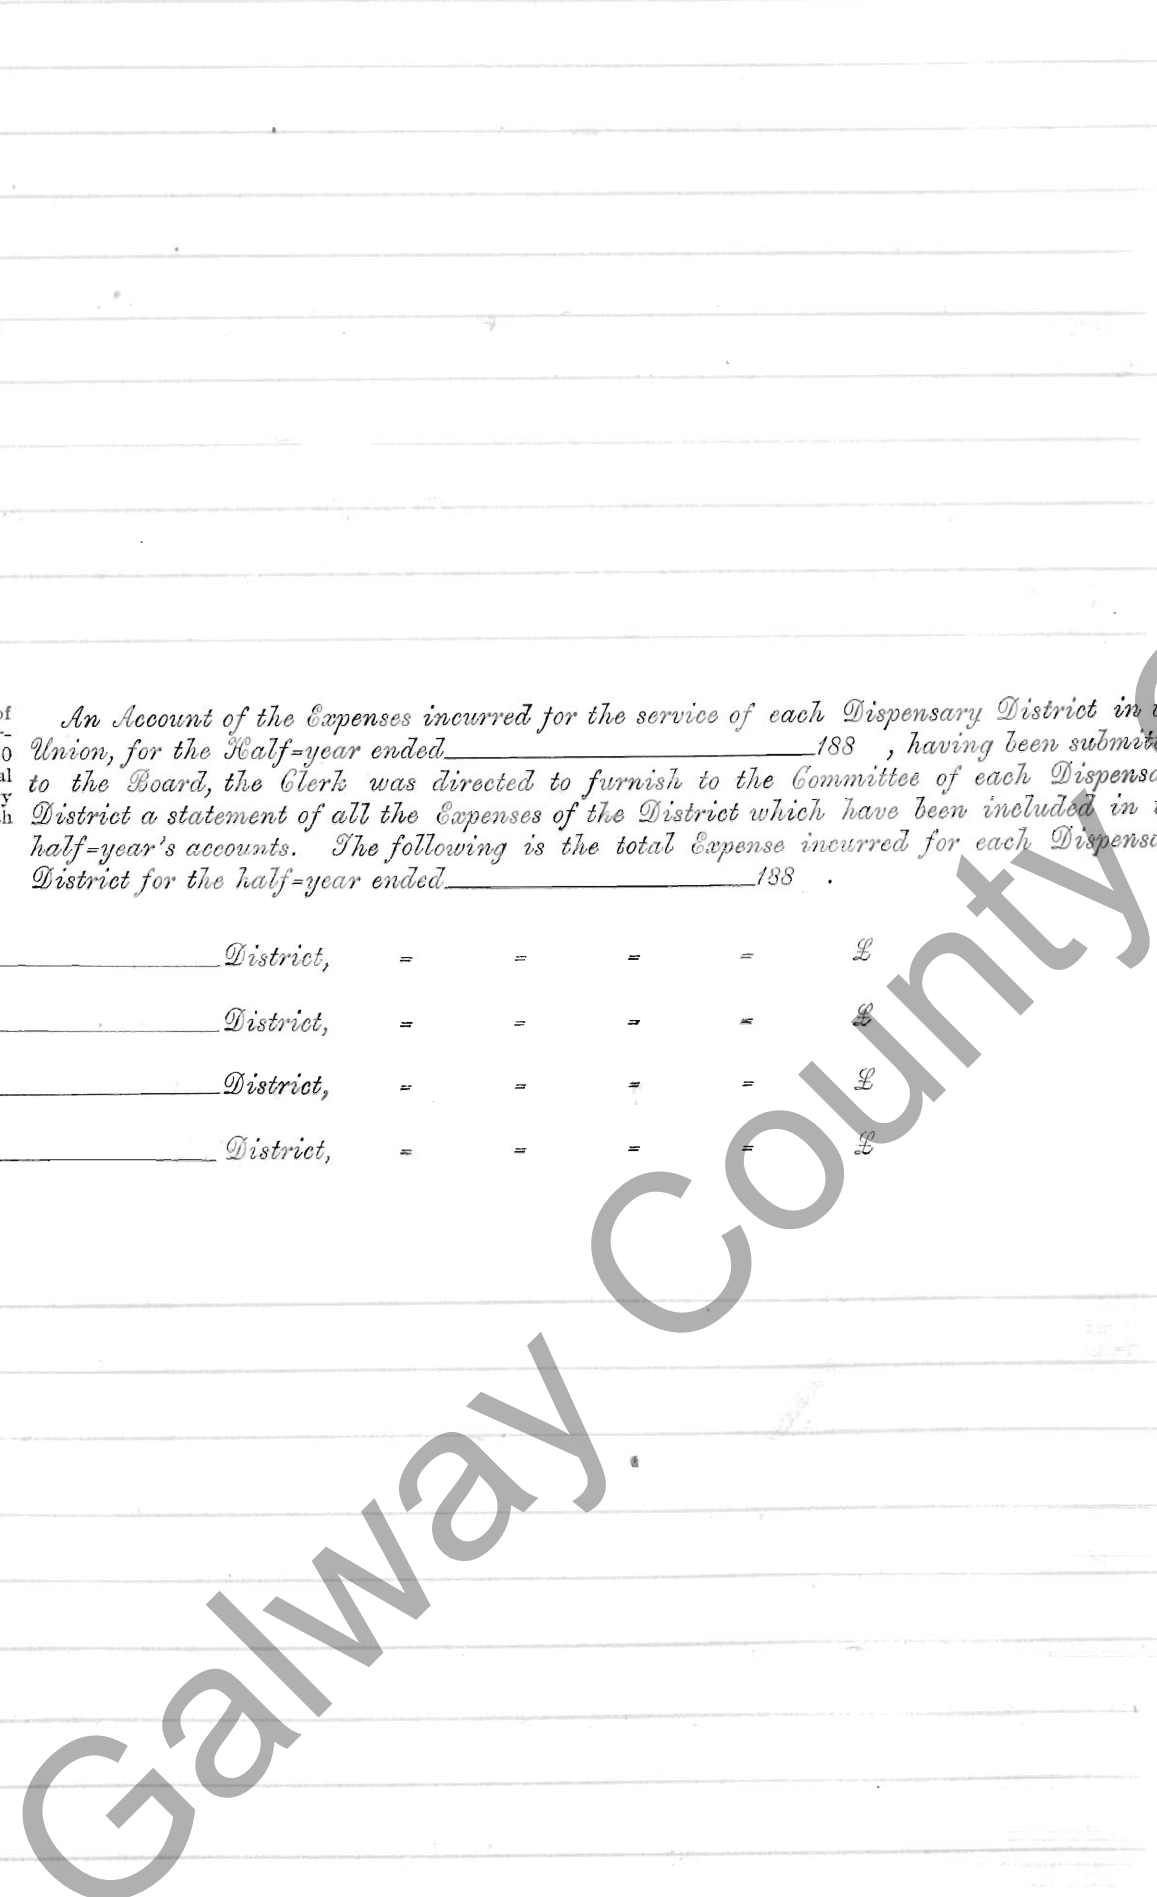 of An Account of the Expenses incurred for the service of each Dispensary District in
0 Union, for the Half=year ended 188 , having been submitt
al to the Board, the Clerk was directed to furnish to the Committee of each Dispensa
y
h District a statement of all the Expenses of the District which have been included in
half=year's accounts. The following is the total Expense incurred for each Dispensa
District for the half=year ended 188 .
District, = = = = £
District, = = = = £
District, = = = = £
District, = = = = £
Galway County